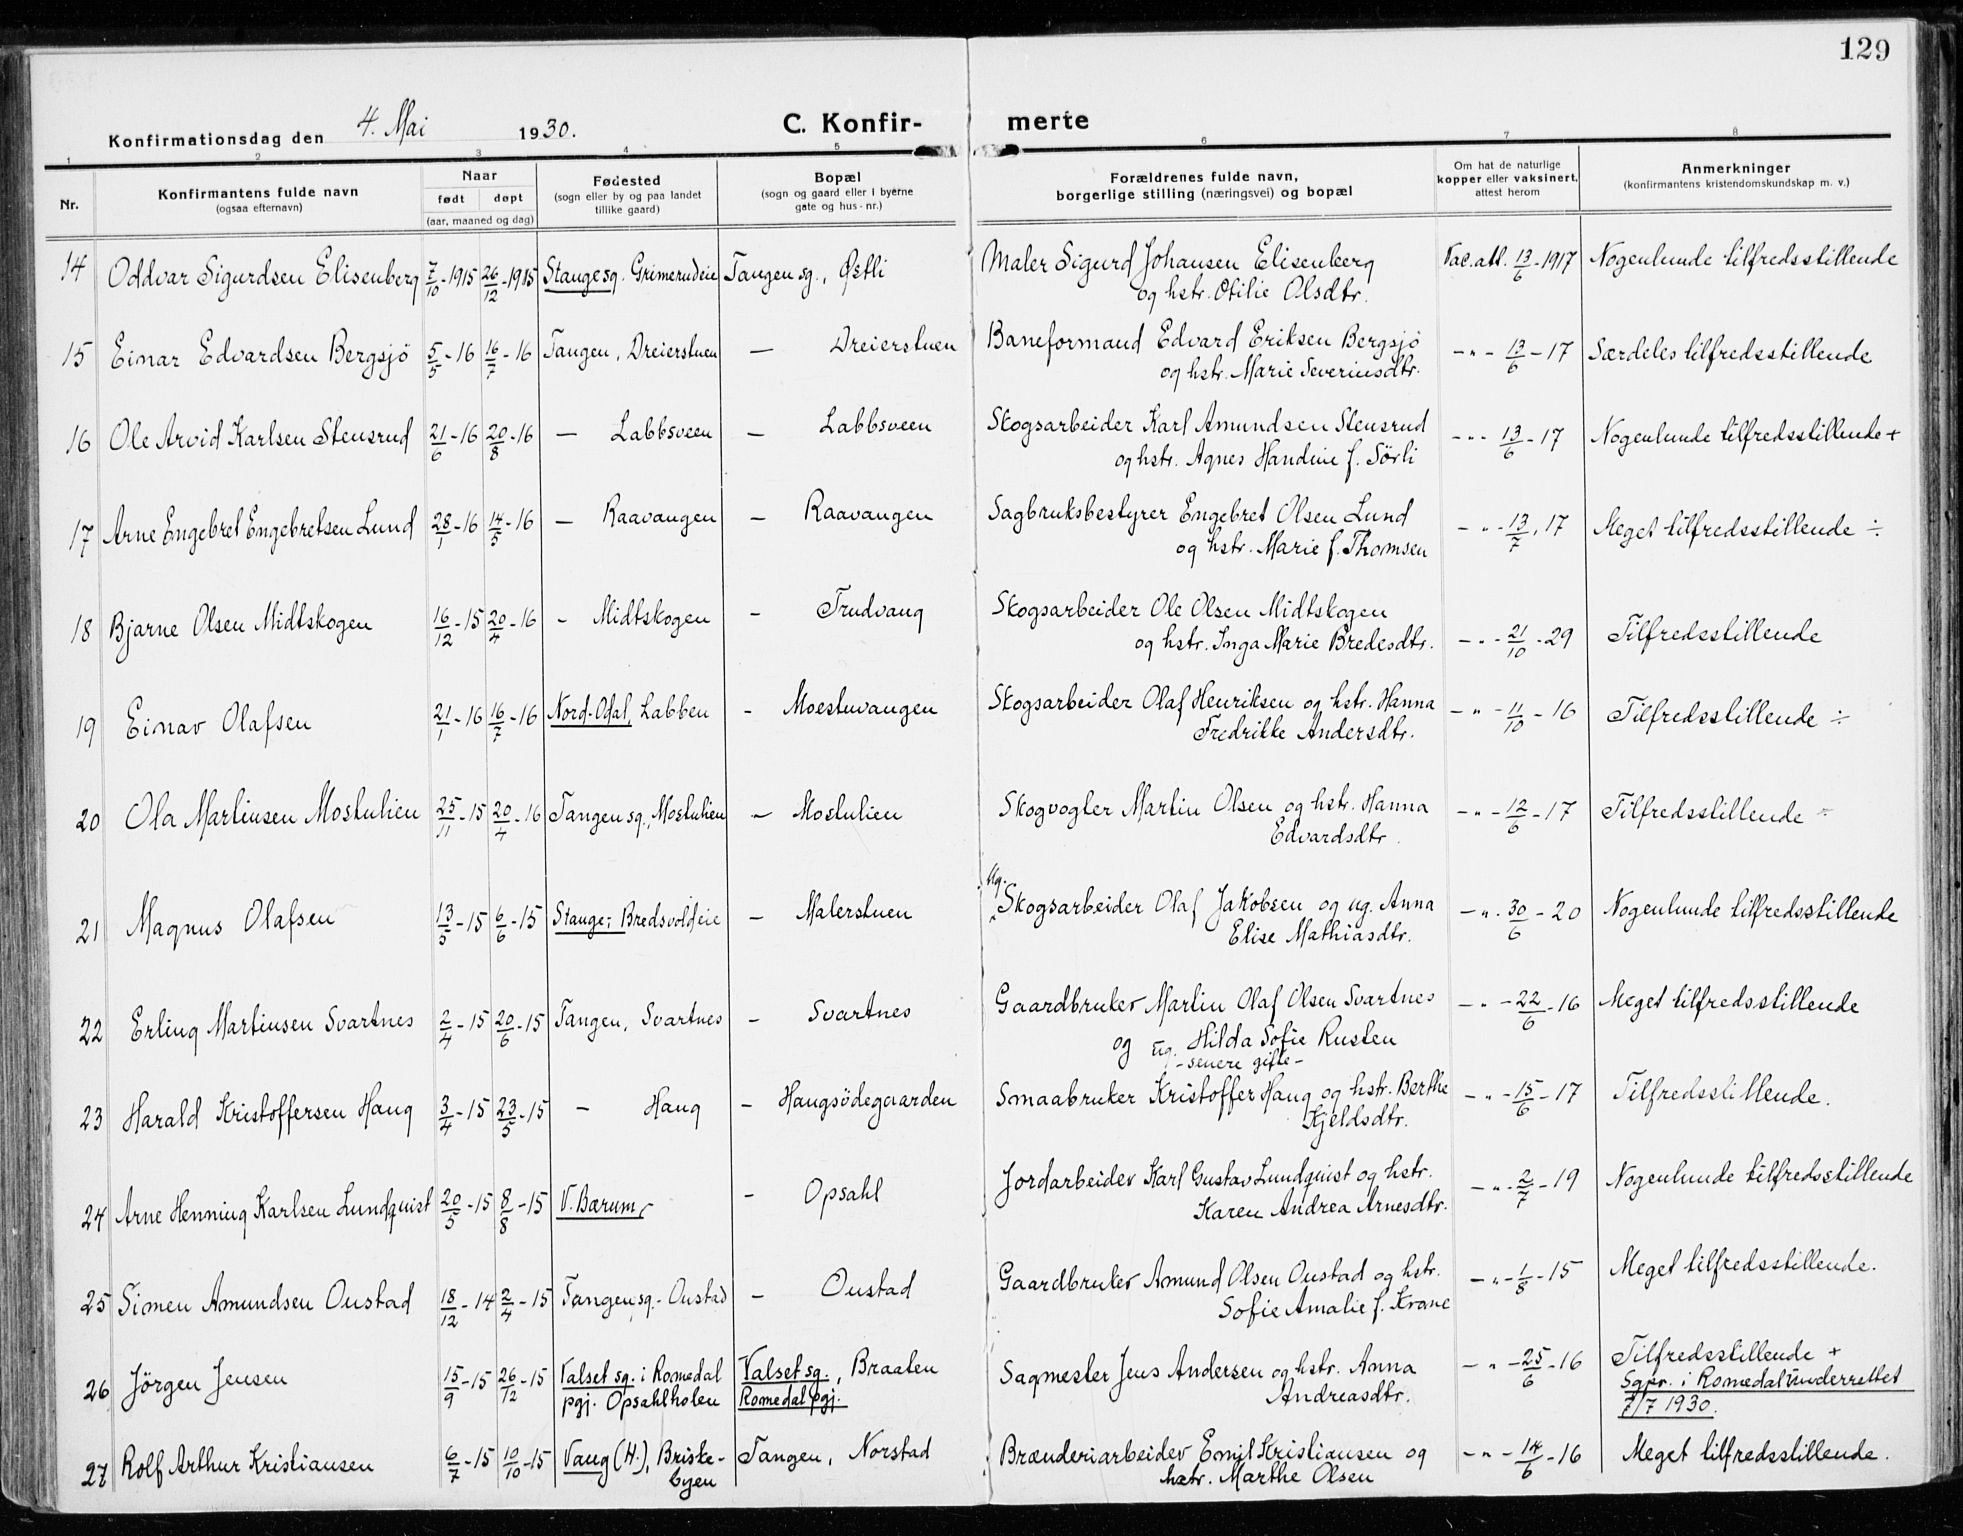 129
Konfirmationsdag den 4. Mai 1930. C. Konfirmerte
1 2 3 4 5 6 7 8
Nr. Konfirmantens fulde navn (ogsaa efternavn) Naar født døpt (aar, maaned og dag) Fødested (sogn eller by og paa landet tillike gaard) Bopæl (sogn og gaard eller i byerne gate og hus-nr.) Forældrenes fulde navn, borgerlige stilling (næringsvei) og bopæl Om hat de naturlige kopper eller vaksinert, attest herom Anmerkninger (konfirmantens kristendomskundskap m. v.)
14 Oddvar Sigurdsen Elisenberg 7/10-1915 26/12-1915 Stange sg. Grimerudeie Tangen sg., Østli Maler Sigurd Johansen Elisenberg Vac.att. 13/6-1917 Nogenlunde tilfredsstillende
og hstr. Otilie Olsdtr.
15 Einar Edvardsen Bergsjö 5/5-16 16/7-16 Tangen, Dreierstuen — Dreierstuen Baneformand Edvard Eriksen Bergsjö -"- 13/6-17 Særdeles tilfredsstillende
og hstr. Marie Severinsdtr.
16 Ole Arvid Karlsen Stensrud 21/6-16 20/8-16 — Labbsveen — Labbsveen Skogsarbeider Karl Amundsen Stensrud -"- 13/6-17 Nogenlunde tilfredsstillende +
og hstr. Agnes Handine f. Sörli
17 Arne Engebret Engebretsen Lund 28/1-16 14/5-16 — Raavangen — Raavangen Sagbruksbestyrer Engebret Olsen Lund -"- 13/7, 17 Meget tilfredsstillende ÷
og hstr. Marie f. Thomsen
18 Bjarne Olsen Midtskogen 16/12-15 20/4-16 - Midtskogen - Trudvang Skogsarbeider Ole Olsen Midtskogen -"- 21/10-29 Tilfredsstillende
og hstr. Inga Marie Bredesdtr.
19 Einar Olafsen 21/1-16 16/7-16 Nord-Odal, Labben - Moestuvangen Skogsarbeider Olaf Henriksen og hstr. Hanna -"- 11/10-16 Tilfredsstillende ÷
Fredrikke Andersdtr.
20 Ola Martinsen Mostulien 25/11-15 20/4-16 Tangen sg., Mostulien — Mostulien Skogvogter Martin Olsen og hstr. Hanna -"- 12/6-17 Tilfredsstillende ÷
Edvardsdtr.
21 Magnus Olafsen 13/5-15 6/6-15 Stange; Bredsvoldeie — Malerstuen Ug. Skogsarbeider Olaf Jakobsen og ug. Anna -"- 30/6-20 Nogenlunde tilfredsstillende
Elise Mathiasdtr.
22 Erling Martinsen Svartnes 2/4-15 20/6-15 Tangen, Svartnes - Svartnes Gaardbruker Martin Olaf Olsen Svartnes -"- 22/6-16 Meget tilfredsstillende
og ug. Hilda Sofie Rusten
- senere gifte -
23 Harald Kristoffersen Haug 3/4-15 23/5-15 - Haug - Haugsödegaarden Smaabruker Kristoffer Haug og hstr. Berthe -"- 15/6-17 Tilfredsstillende.
Kjeldsdtr.
24 Arne Henning Karlsen Lundquist 20/5-15 8/8-15 V. Bærum, - Opsahl Jordarbeider Karl Gustav Lundquist og hstr. -"- 2/7-19 Nogenlunde tilfredsstillende
Karen Andrea Arnesdtr.
25 Simen Amundsen Oustad 18/12-14 2/4-15 Tangen sg.- Oustad — Oustad Gaardbruker Amund Olsen Oustad og hstr. -"- 1/8-15 Meget tilfredsstillende.
Sofie Amalie f. Krane
26 Jörgen Jensen 15/9-15 26/12-15 Valset sg. i Romedal pgj. Opsahlholen Valset sg., Braaten Romedal pgj. Sagmester Jens Andersen og hstr. Anna -"- 25/6-16 Tilfredsstillende +
Andreasdtr. Sgpr. i Romedal underrettet
7/7 1930.
27 Rolf Arthur Kristiansen 6/7-15 10/10-15 Vang (H.), Briskebyen Tangen, Norstad Brænderiarbeider Emil Kristiansen og -"- 14/6-16 Meget tilfredsstillende.
hstr. Marthe Olsen